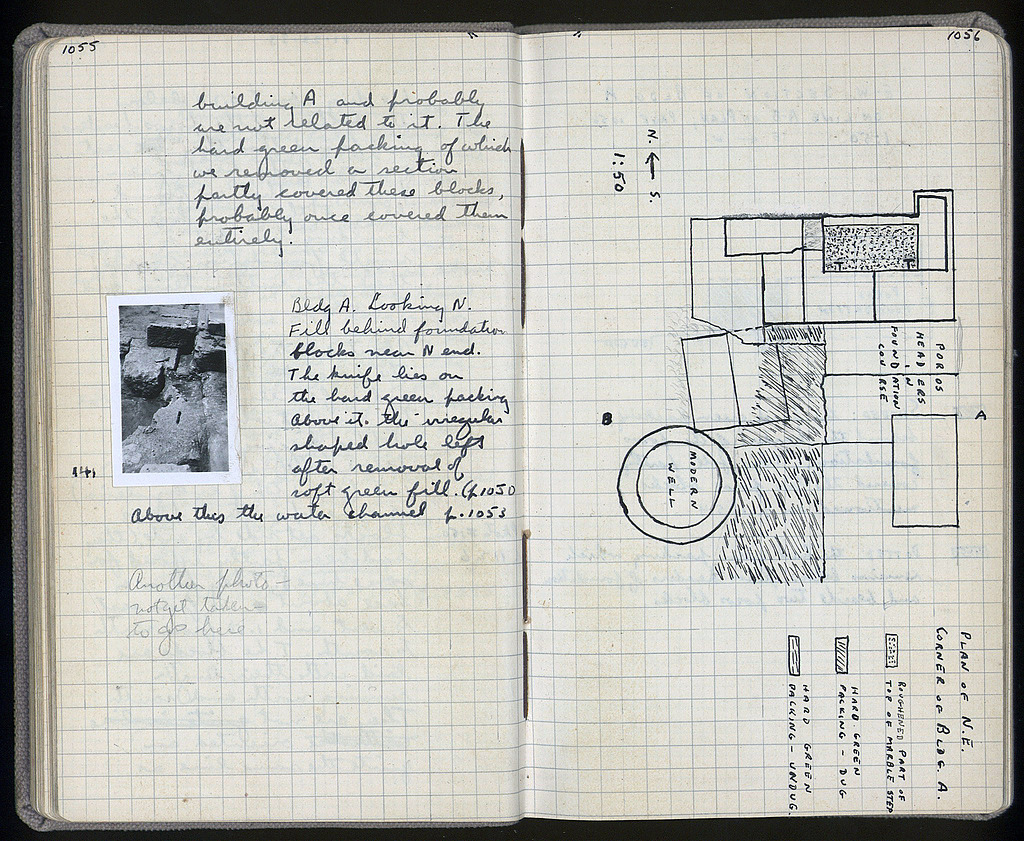 1055
building A and probably
are not related to it. The
hard green packing of which
we removed a section
partly covered these blocks,
probably once covered them
entirely.
Bldg A. Looking N.
Fill behind foundation
blocks near N end.
The knife lies on
the hard green packing
above it. the irregular
shaped hole left
after removal of
soft green fill. (p.1050
Above this the water channel p.1053
Another photo-
not yet taken-
to go here
1056
N. ← S.
1:50
POROS
HEADERS
IN
FOUNDATION
COURSE
A
B
MODERN
WELL
PLAN OF N.E.
CORNER OF BLDG. A.
ROUGHENED PART OF
TOP OF MARBLE STEP
HARD GREEN
PACKING - DUG
HARD GREEN
PACKING - UNDUG.